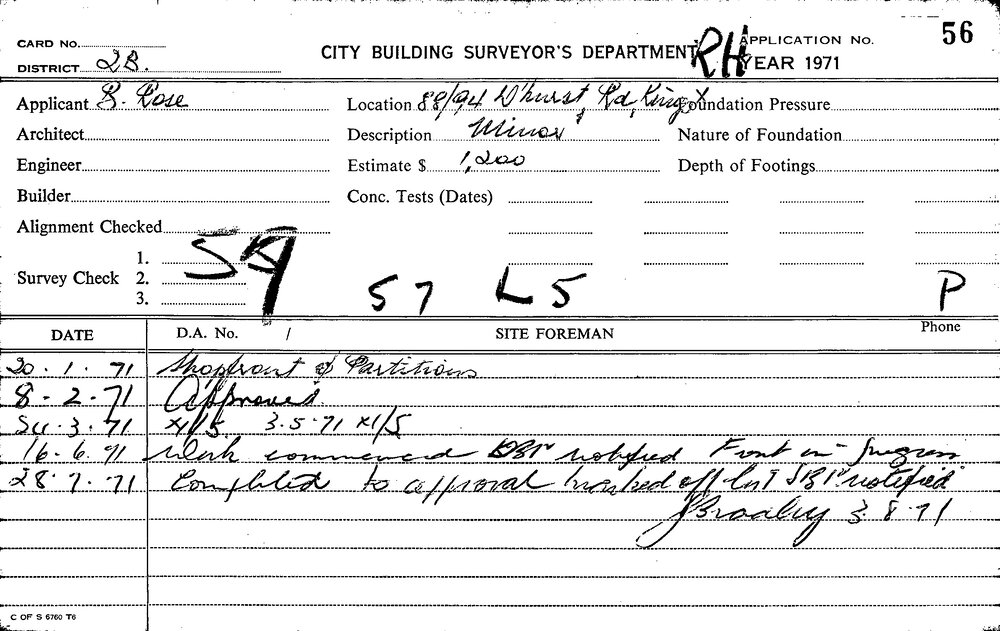 CARD No.
DISTRICT 2B.
CITY BUILDING SURVEYOR'S DEPARTMENT
RH
APPLICATION No. 56
YEAR 1971
Applicant S. Rose
Location 88/94 D'hurst Rd, Kings X
Foundation Pressure
Architect
Description Minor
Nature of Foundation
Engineer
Estimate $ 1,200
Depth of Footings
Builder
Conc. Tests (Dates)
Alignment Checked
Survey Check 1.
2.
3.
57 L5 P
Phone
DATE D.A. No. / SITE FOREMAN
20.1.71 Shopfront & Partitions
8-2-71 Approved
3.71 x1/5 3.5.71 x1/5
16.6.71 Work commenced notified Front in
28.7.71 Completed to approval marked off notified
3.8.71
C OF S 6760 T6